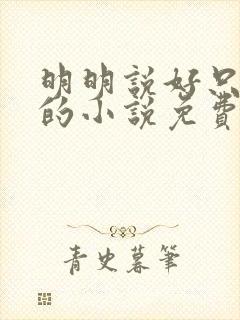 明明説好只
的小説免費
青史暮筆